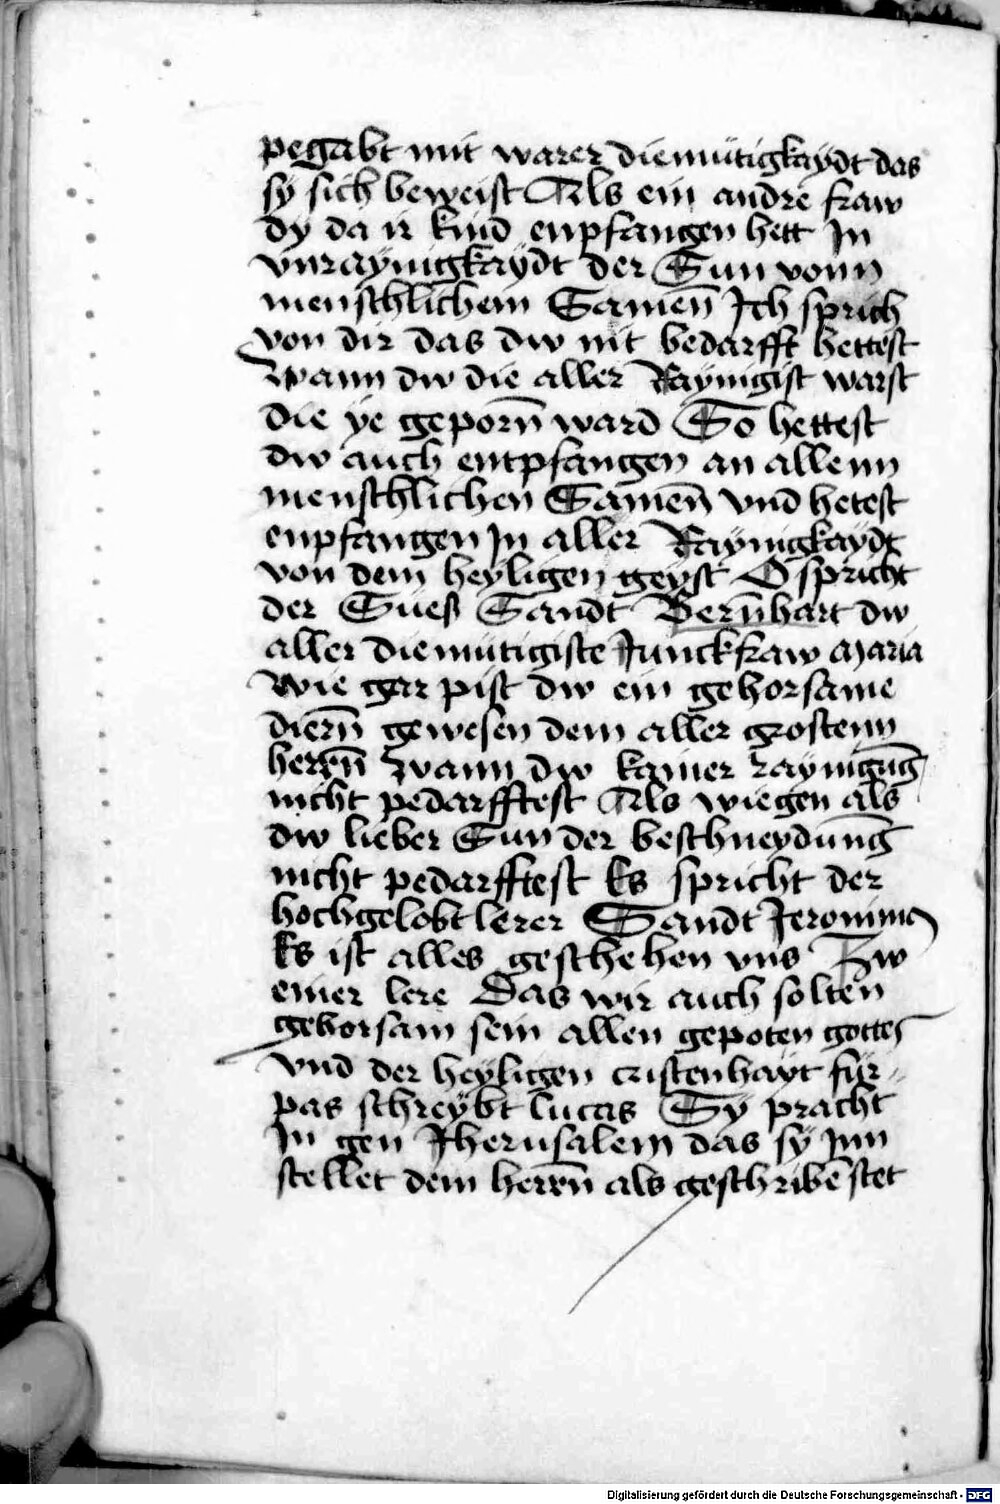 pegabt mit warer diemütigkaydt das
sy sich beweist Als ein andre fraw
dy da ir kind enpfangen hett In
vnraynigkaydt der Sun vonn
menschlichem Samen̄ Ich sprich
von dir das dw nit bedarfft hettest
Wann dw die aller Raynigist warst
die ÿe geporn̄ ward So hettest
dw auch entpfangen an allenn
menschlichen Samen̄ vnd hetest
enpfangen In aller Raynigkaydt
von dem heyligen geyst O spricht
der Süeß Sandt Bern̄hart dw
aller diemütigiste Junckfraw Maria
Wie gar pist dw ein gehorsame
diern̄ gewesen dem aller grostenn
herren̄ Wann dw kainer Raynigūg
nicht pedarfftest Als wiegen als
dw lieber Sun der beschneydunḡ
nicht pedarfftest Es spricht der
hochgelobt lerer Sandt Jeronimus
Es ist alles geschehen vns Zw
einer lere Das wir auch solten
gehorsam sein allen gepoten gottes
vnd der heyligen cristenhayt für
pas schreybt lucas Sÿ pracht
In gen Jherusalem das sÿ jnn
stellet dem herren̄ als geschribē stet
Digitalisierung gefördert durch die Deutsche Forschungsgemeinschaft - DFG